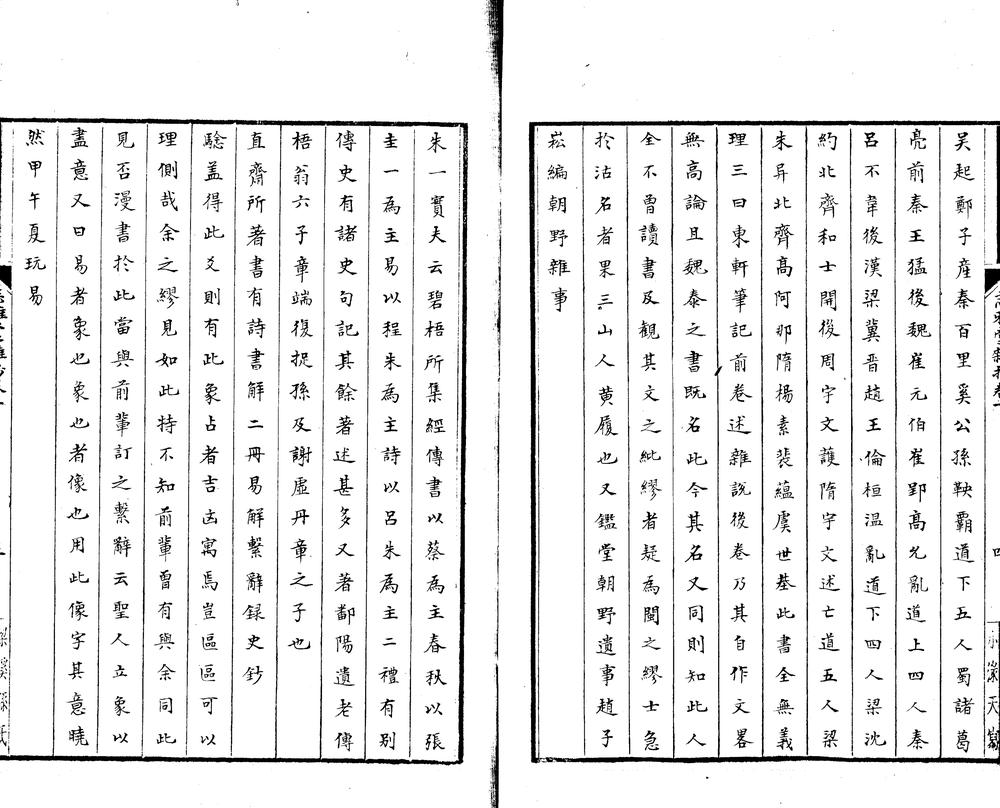 吴起鄭子産秦百里奚公孫鞅霸道下五人蜀諸葛
亮前秦王猛後魏崔元伯崔郢高允亂道上四人秦
呂不韋後漢梁冀晉趙王倫桓温亂道下四人梁沈
約北齊和士開後周宇文護隋宇文述亡道五人梁
朱异北齊高阿那隋楊素裴藴虞世基此書全無義
理三曰東軒筆記前卷述雜說後卷乃其自作文畧
無高論且魏泰之書既名此今其名又同則知此人
全不曾讀書及觀其文之紕繆者疑為閩之繆士急
於沽名者果三山人黄履也又鑑堂朝野遺事趙子
崧編朝野雜事
朱一實夫云碧梧所集經傳書以蔡為主春秋以張
圭一為主易以程朱為主詩以呂朱為主二禮有别
傳史有諸史句記其餘著述甚多又著鄱陽遺老傳
梧翁六子章端復捉孫及謝虚丹章之子也
直齋所著書有詩書解二冊易解繫辭録史鈔
騐盖得此爻則有此象占者吉凶寓焉豈區區可以
理側哉余之繆見如此持不知前輩曾有與余同此
見否漫書於此當與前輩訂之繫辭云聖人立象以
盡意又曰易者象也象也者像也用此像字其意曉
然甲午夏玩易